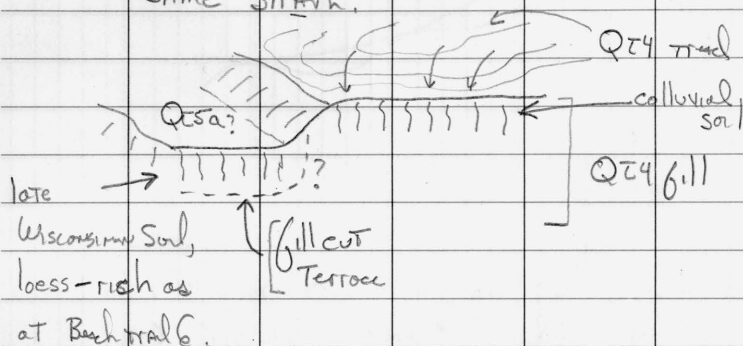 SAME
Qt4 tread
colluvial
soil
Qt5a?
Qt4 fill
?
late
Wisconsinan Soil,
loess-rich as
at Beach trail 6.
fill cut
Terrace